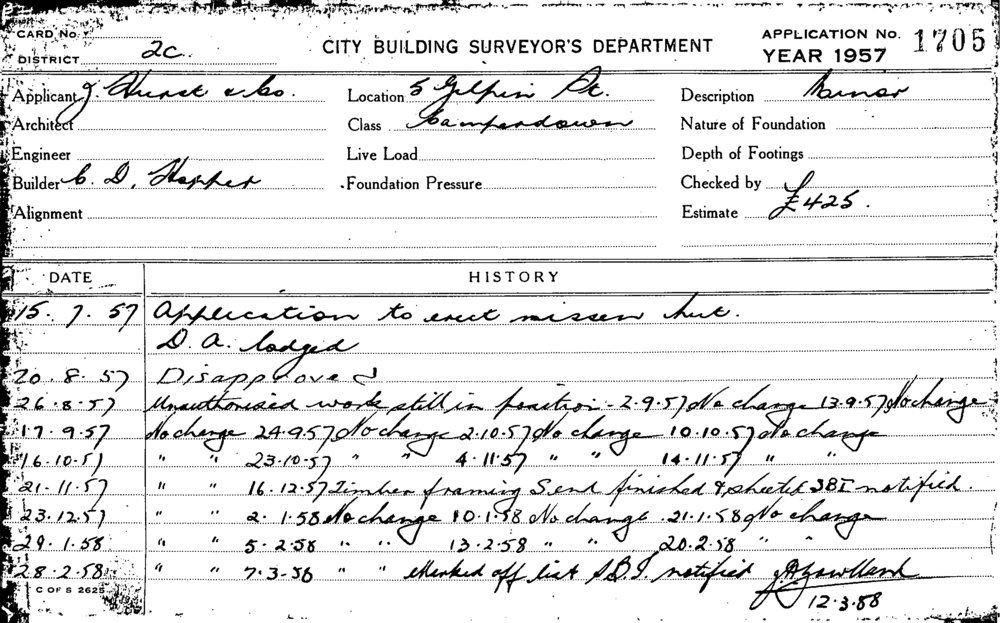 CARD No.
DISTRICT 2C
CITY BUILDING SURVEYOR'S DEPARTMENT
APPLICATION No. 1705
YEAR 1957
Applicant J. Hurst & Co.
Location 5 Gilpin St.
Description Minor
Architect
Class Camperdown
Nature of Foundation
Engineer
Live Load
Depth of Footings
Builder C. D. Hopper
Foundation Pressure
Checked by
Alignment
Estimate £425.
DATE HISTORY
15. 7. 57 Application to erect nissen hut.
D. A. lodged
20. 8. 57 Disapproved
26.8.57 Unauthorised work still in position - 2.9.57 No change 13.9.57 No change
17.9.57 No change 24.9.57 No change 2.10.57 No change 10.10.57 No change
16.10.57 " " 23.10.57 " " 4.11.57 " " 14.11.57 " "
21.11.57 " " 16.12.57 Timber framing S. end finished & sheeted SBI notified.
23.12.57 " " 2.1.58 No change 10.1.58 No change 21.1.58 No change
29.1.58 " " 5.2.58 " " 13.2.58 " " 20.2.58 " "
28.2.58 " " 7.3.58 " " Marked off list S.B.I. notified
12.3.58
C OF S 2625